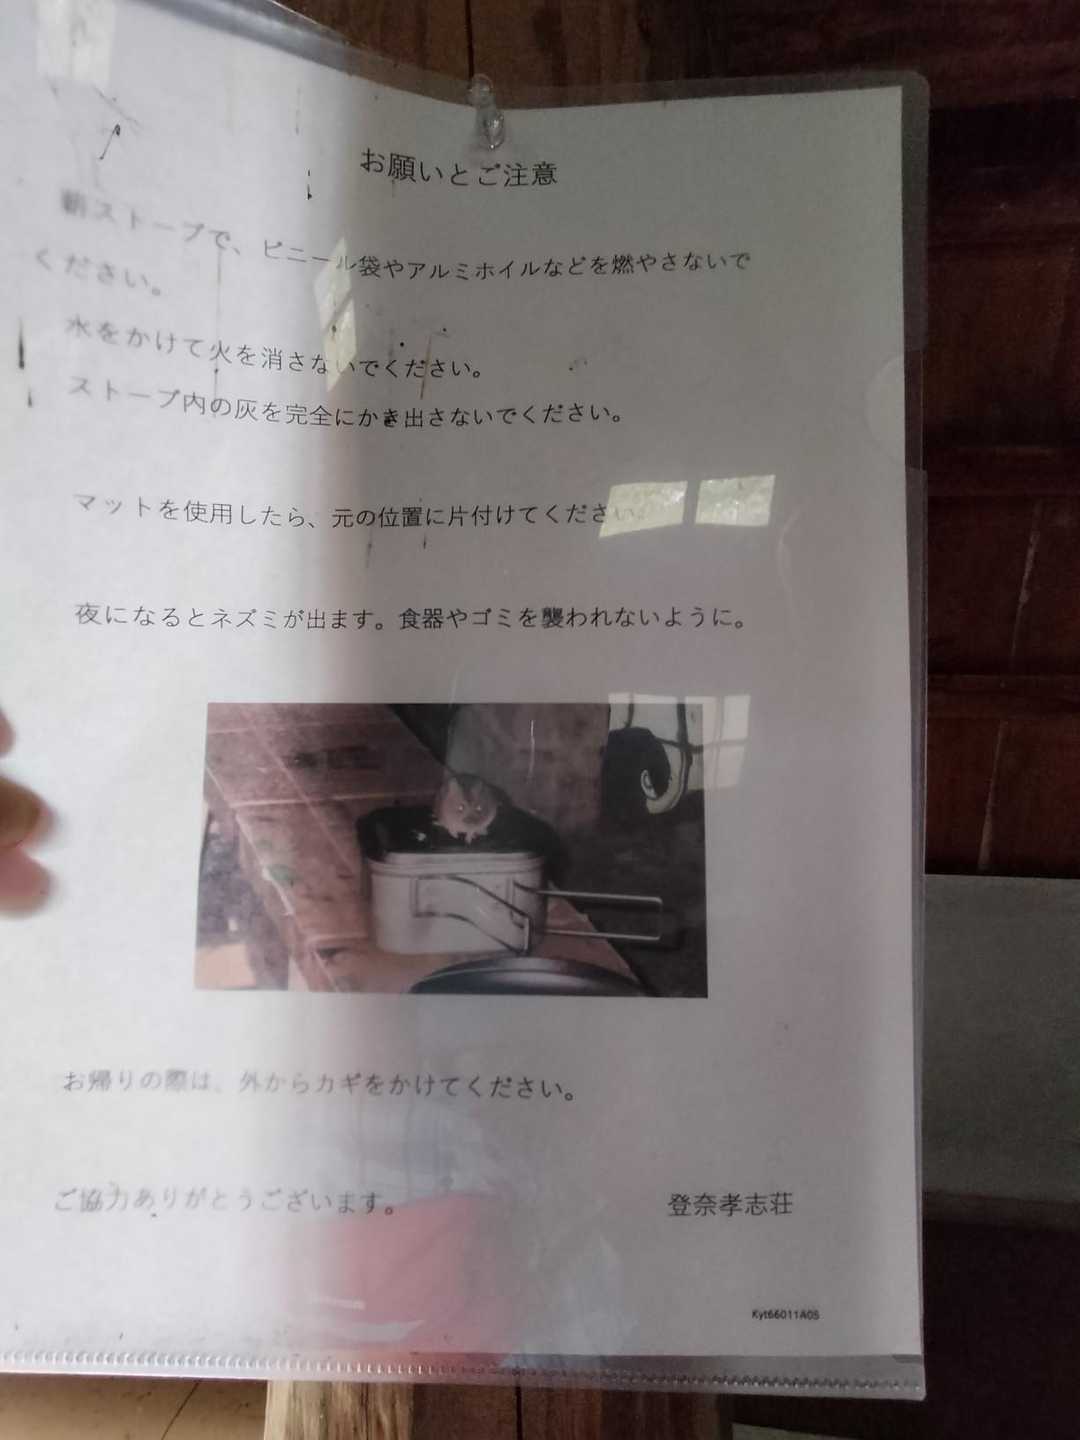 お願いとご注意
薪ストーブで、ビニール袋やアルミホイルなどを燃やさないで
ください。
水をかけて火を消さないでください。
ストーブ内の灰を完全にかき出さないでください。
マットを使用したら、元の位置に片付けてください。
夜になるとネズミが出ます。食器やゴミを襲われないように。
お帰りの際は、外からカギをかけてください。
ご協力ありがとうございます。 登奈孝志荘
Kyt66011A05